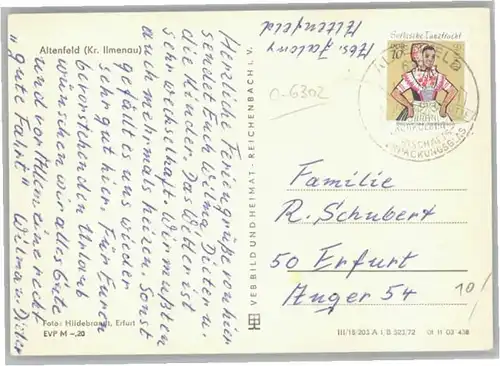 Altenfeld (Kr. Ilmenau)
Herzliche Feriengrüße von hier
sendet Euch Wilma, Dieter u.
die Kinder. Das Wetter ist
sehr wechselhaft. Wir mußten
auch mehrmals heizen. Sonst
gefällt es uns wieder
sehr gut hier. Für Euren
bevorstehenden Urlaub
wünschen wir alles Gute
und vor Allem eine recht
"gute Fahrt" Wilma u. Dieter
Foto: Hildebrandt, Erfurt
EVP M -,20
VEB BILD UND HEIMAT · REICHENBACH i. V.
Abs.
Altenfeld
O-6302
Sorbische Tanztracht
DDR
10
Familie
R. Schubert
50 Erfurt
Anger 54
10/
III/18/203 A 1, B 323/72 01 11 03 438